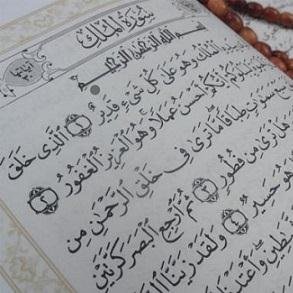 سُورَةُ الْمُلْكِ
بِسْمِ اللَّهِ الرَّحْمَٰنِ الرَّحِيمِ
الْمُلْكُ وَهُوَ عَلَىٰ كُلِّ شَيْءٍ قَدِيرٌ ١ الَّذِي خَلَقَ
لِيَبْلُوَكُمْ أَيُّكُمْ أَحْسَنُ عَمَلًا وَهُوَ الْعَزِيزُ الْغَفُورُ ٢
سَمَٰوَٰتٍ طِبَاقًا مَّا تَرَىٰ فِي خَلْقِ الرَّحْمَٰنِ مِن
هَلْ تَرَىٰ مِن فُطُورٍ ٣ ثُمَّ ارْجِعِ الْبَصَرَ كَرَّتَيْنِ
وَهُوَ حَسِيرٌ ٤ وَلَقَدْ زَيَّنَّا
وَأَعْتَدْنَا